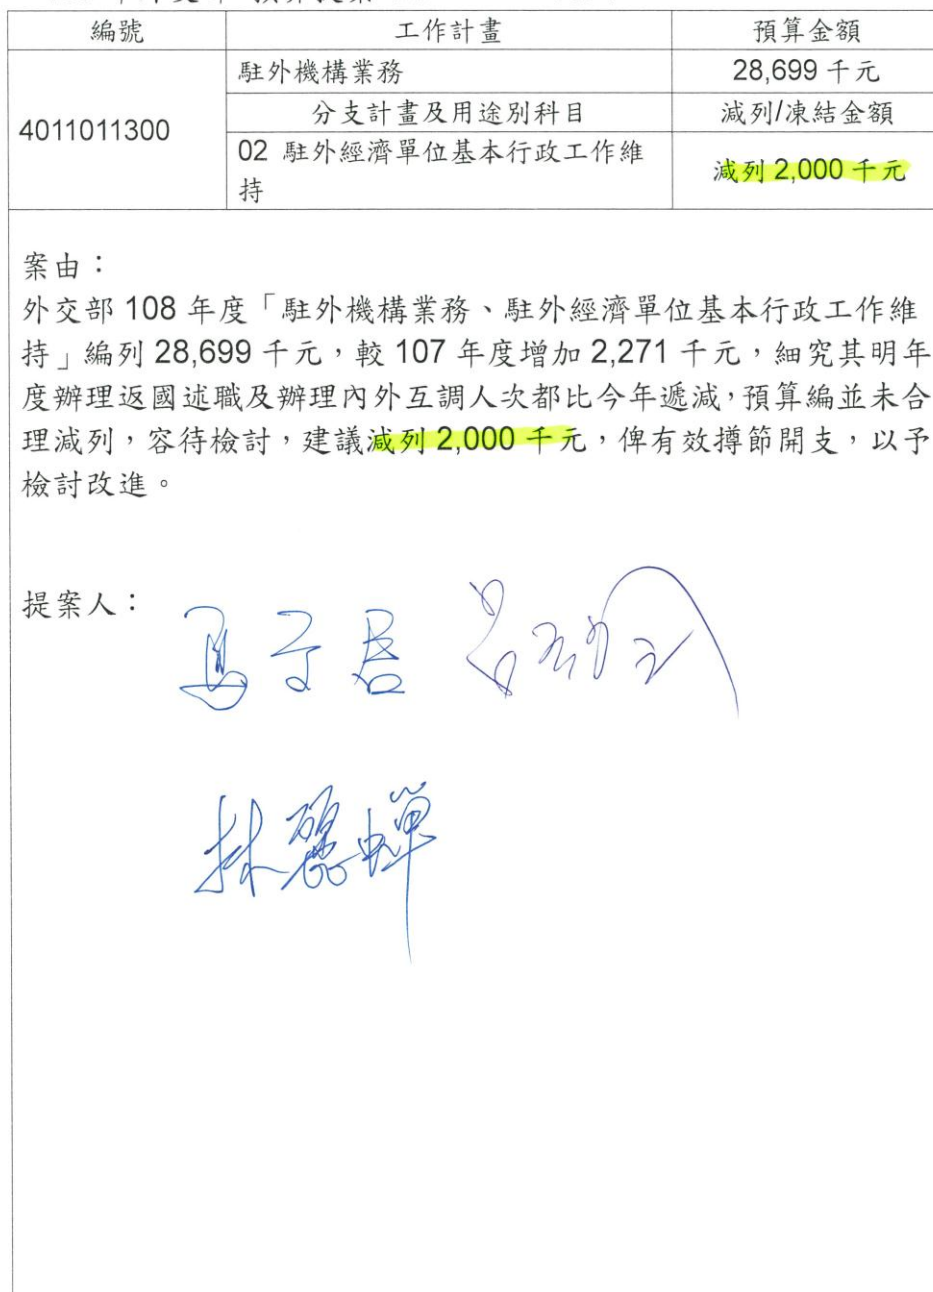 編號 工作計畫 預算金額
4011011300 駐外機構業務 28,699 千元
分支計畫及用途別科目 減列/凍結金額
02 駐外經濟單位基本行政工作維
持
減列 2,000 千元
案由：
外交部 108 年度「駐外機構業務、駐外經濟單位基本行政工作維
持」編列 28,699 千元，較 107 年度增加 2,271 千元，細究其明年
度辦理返國述職及辦理內外互調人次都比今年遞減，預算編並未合
理減列，容待檢討，建議減列 2,000 千元，俾有效撙節開支，以予
檢討改進。
提案人：
林麗蟬